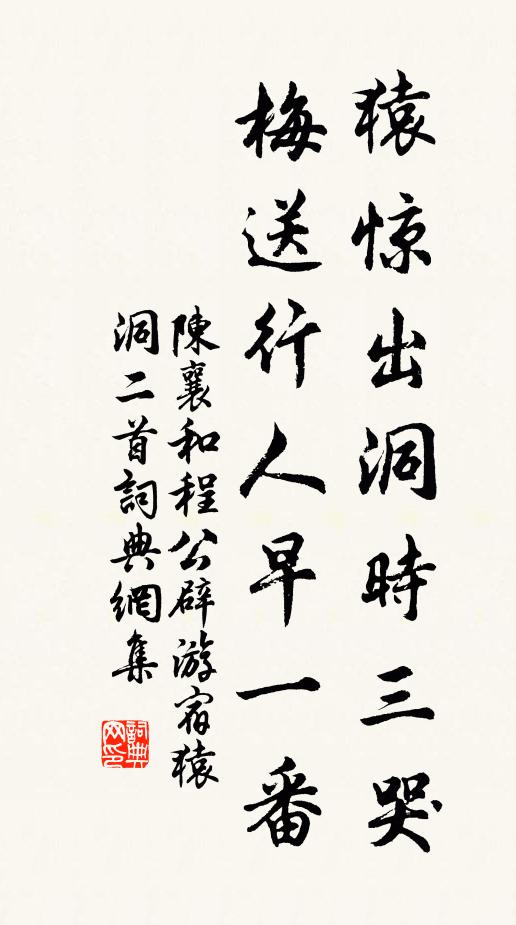 猿惊出洞時三哭
梅送行人早一番
陳襄和程公辟游宿猿
洞二首詞典網集
詞典网印